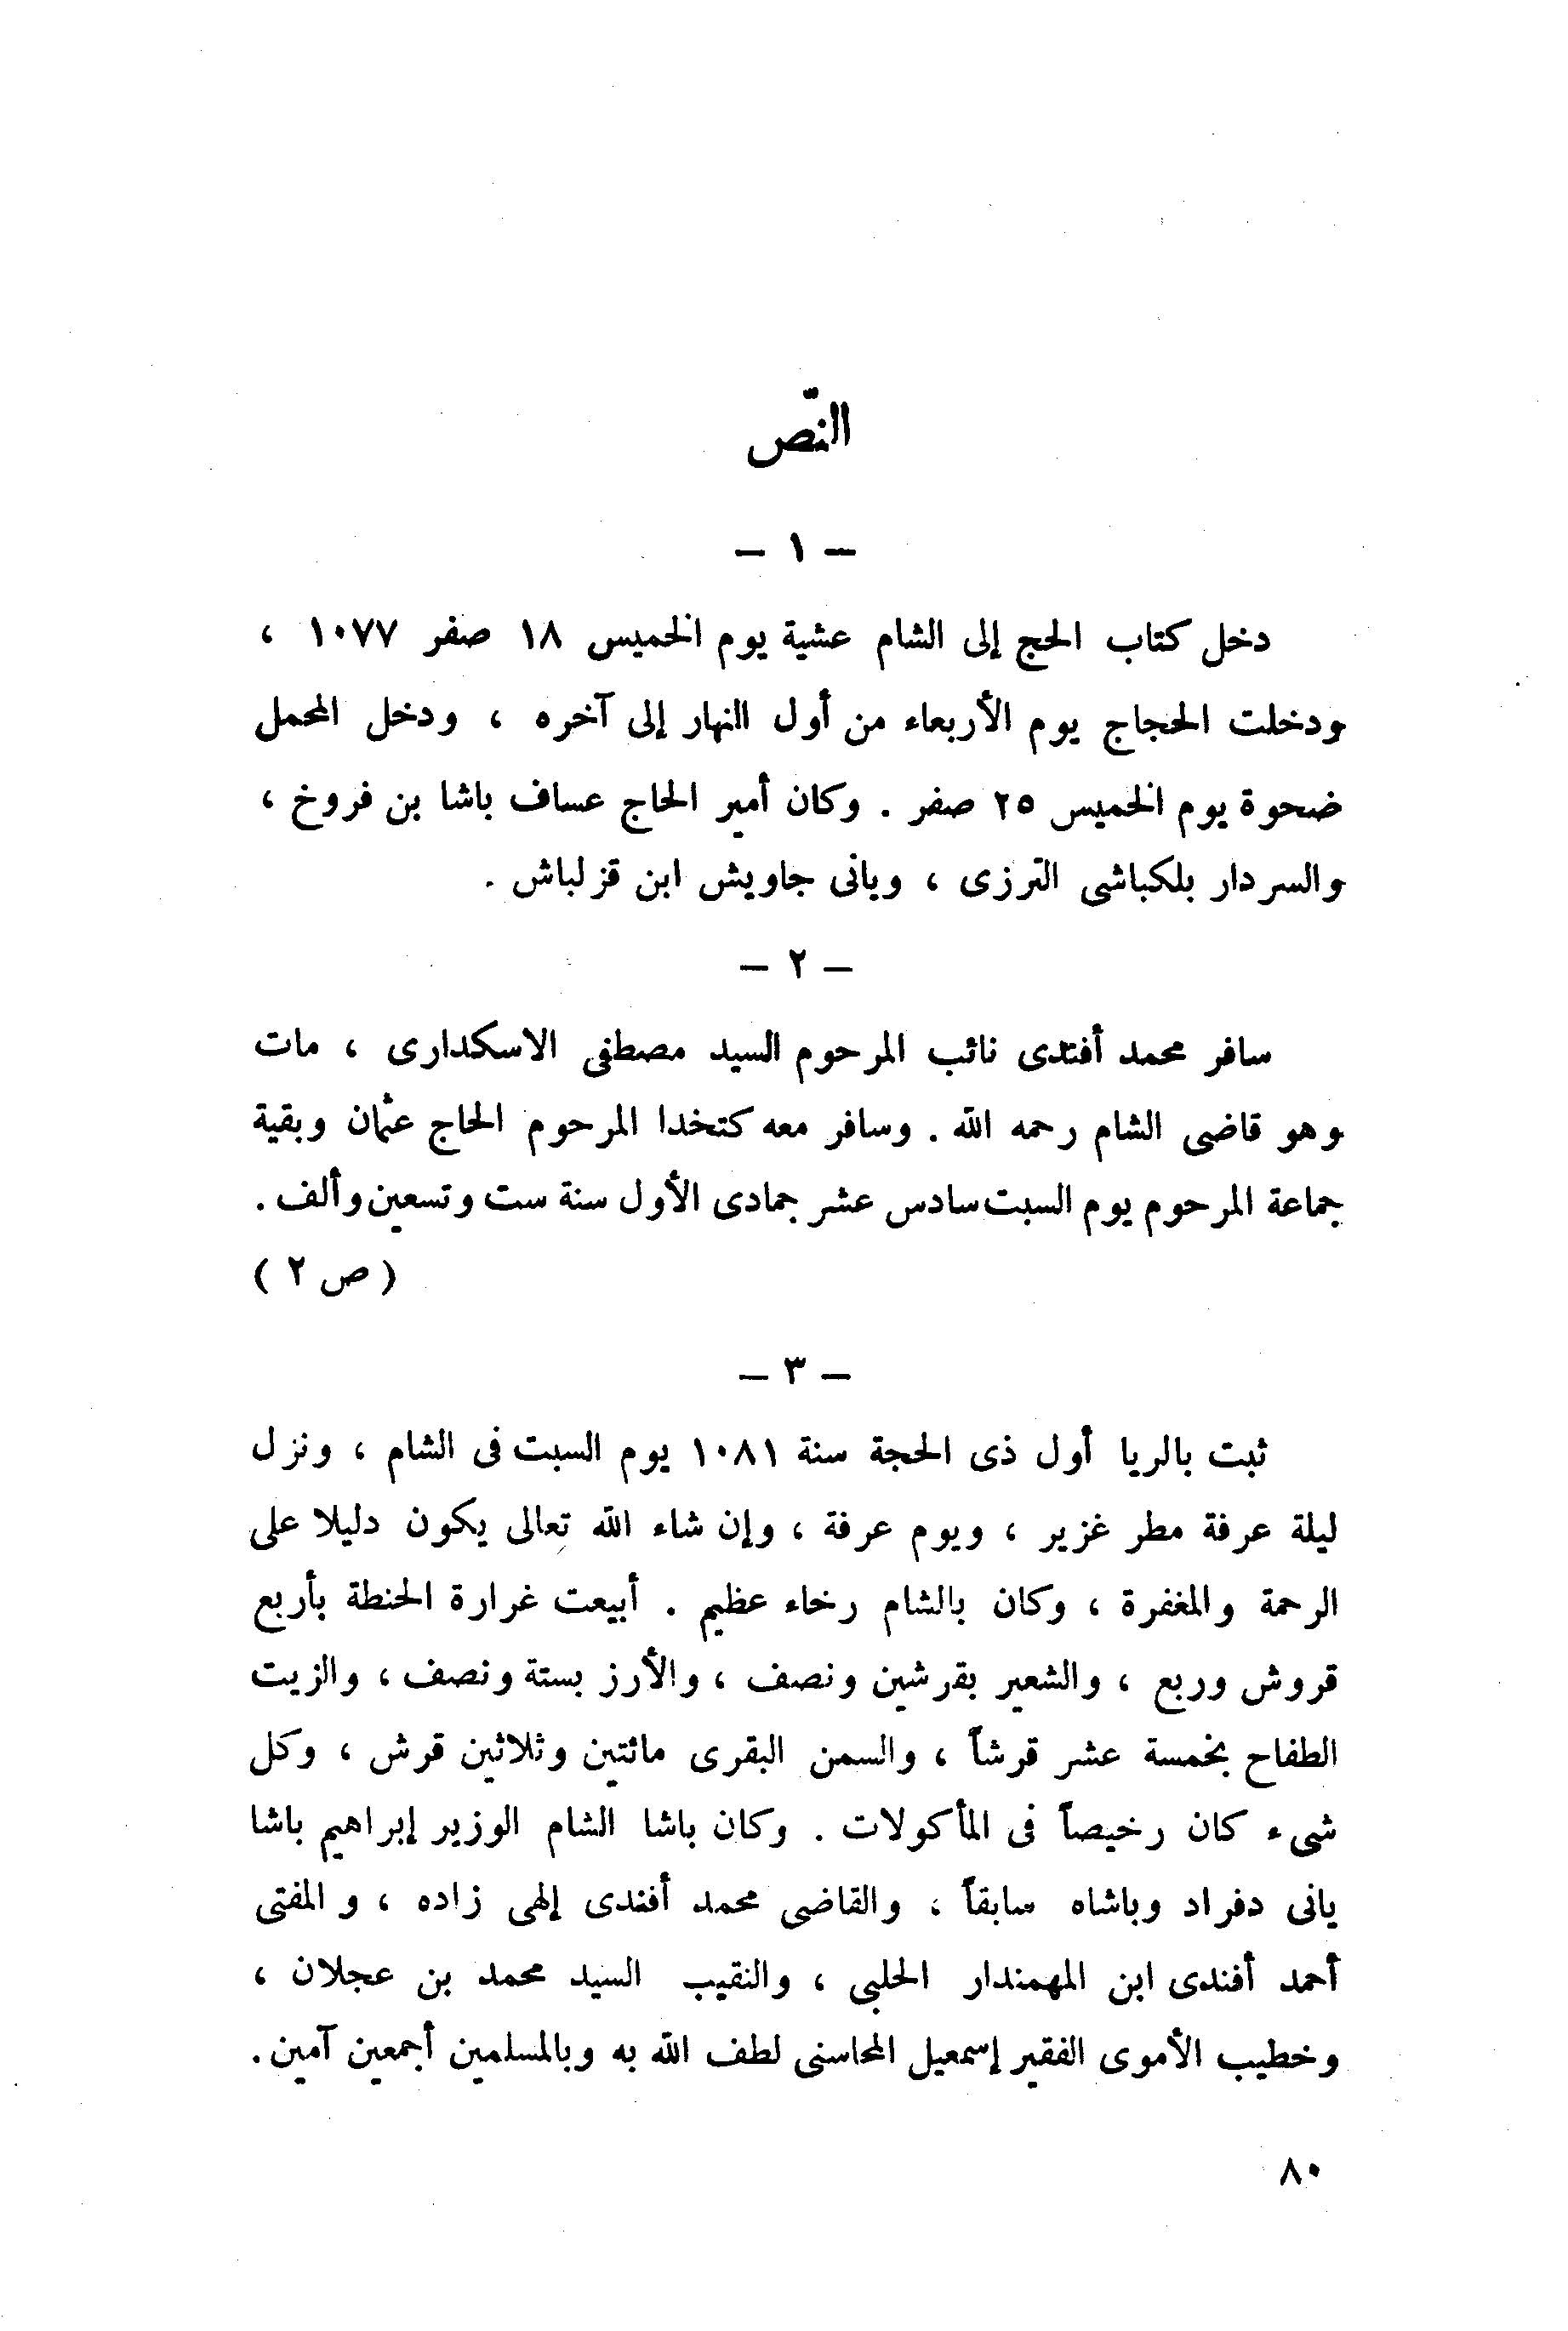 النّص
— ١ —
دخل كتاب الحج إلى الشام عشية يوم الخميس ١٨ صفر ١٠٧٧ ،
ودخلت الحجاج يوم الأربعاء من أول النهار إلى آخره ، ودخل المحمل
ضحوة يوم الخميس ٢٥ صفر . وكان أمير الحاج عساف باشا بن فروخ ،
والسردار بلكباشى الترزى ، ويانى جاويش ابن قزلباش .
— ٢ —
سافر محمد أفندى نائب المرحوم السيد مصطفى الاسكدارى ، مات
وهو قاضى الشام رحمه الله . وسافر معه كتخدا المرحوم الحاج عثمان وبقية
جماعة المرحوم يوم السبت سادس عشر جمادى الأول سنة ست وتسعين وألف .
( ص ٢ )
— ٣ —
ثبت بالريا أول ذى الحجة سنة ١٠٨١ يوم السبت فى الشام ، ونزل
ليلة عرفة مطر غزير ، ويوم عرفة ، وإن شاء الله تعالى يكون دليلا على
الرحمة والمغفرة ، وكان بالشام رخاء عظيم . أبيعت غرارة الحنطة بأربع
قروش وربع ، والشعير بقرشين ونصف ، والأرز بستة ونصف ، والزيت
الطفاح بخمسة عشر قرشاً ، والسمن البقرى مائتين وثلاثين قرش ، وكل
شىء كان رخيصاً فى المأكولات . وكان باشا الشام الوزير إبراهيم باشا
يانى دفراد وباشاه سابقاً ، والقاضى محمد أفندى إلهى زاده ، والمفتى
أحمد أفندى ابن المهمندار الحلبى ، والنقيب السيد محمد بن عجلان ،
وخطيب الأموى الفقير إسمعيل المحاسنى لطف الله به وبالمسلمين أجمعين آمين .
٨٠